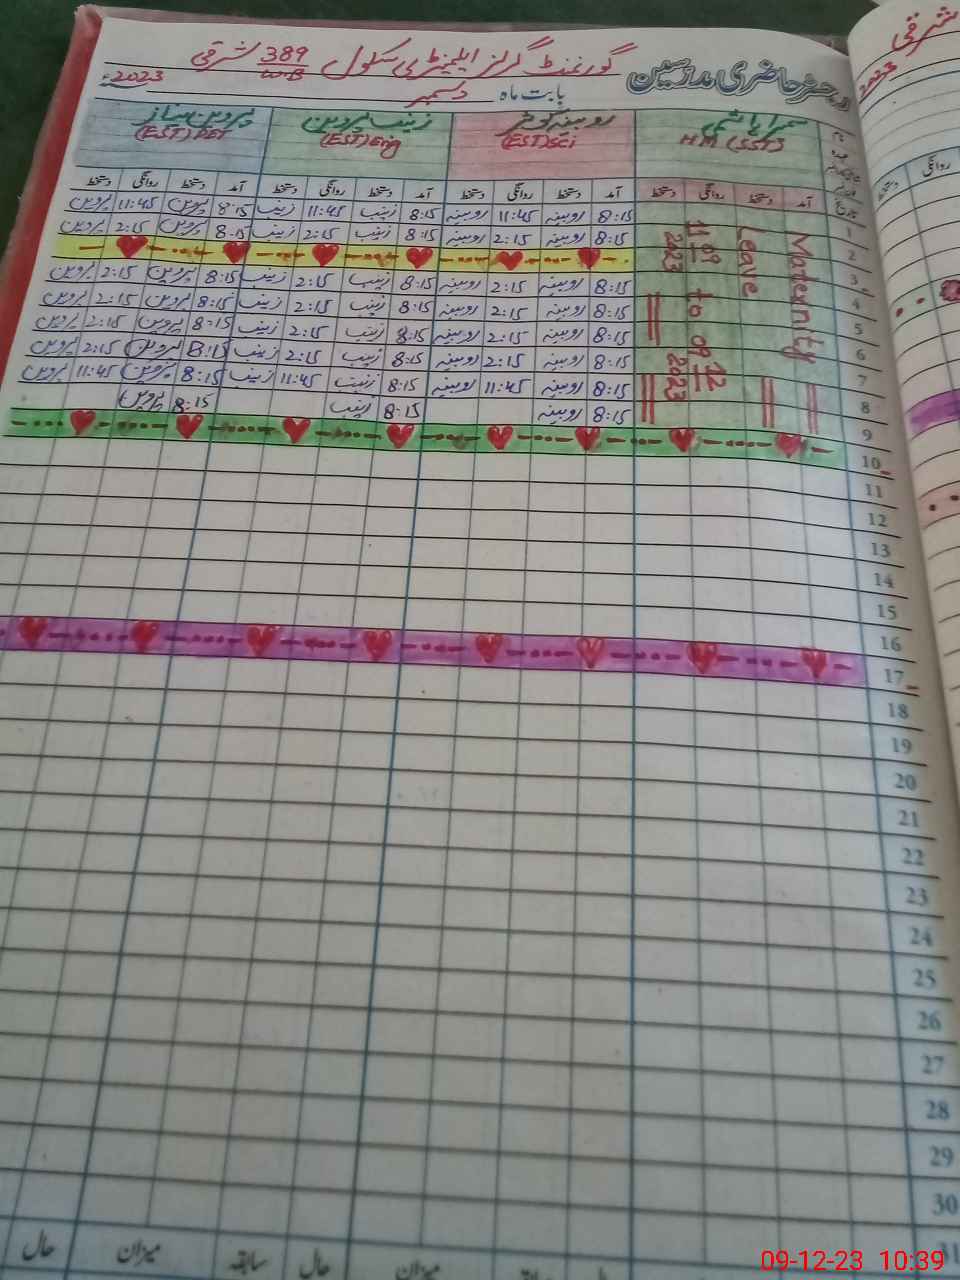 رجسٹر حاضری مدرسین گورنمنٹ گرلز ایلیمنٹری سکول 389/W-B شرقی
بابت ماہ دسمبر 2023ء
سمیرا ہاشمی روبینہ کوثر زینب پروین پروین ممتاز
HM (SST) (EST) Sci (EST) Eng (EST) PET
آمد دستخط روانگی دستخط آمد دستخط روانگی دستخط آمد دستخط روانگی دستخط آمد دستخط روانگی دستخط
1 8:15 روبینہ 11:45 روبینہ 8:15 زینب 11:45 زینب 8:15 پروین 11:45 پروین
2 8:15 روبینہ 2:15 روبینہ 8:15 زینب 2:15 زینب 8:15 پروین 2:15 پروین
3
4 8:15 روبینہ 2:15 روبینہ 8:15 زینب 2:15 زینب 8:15 پروین 2:15 پروین
5 8:15 روبینہ 2:15 روبینہ 8:15 زینب 2:15 زینب 8:15 پروین 2:15 پروین
6 8:15 روبینہ 2:15 روبینہ 8:15 زینب 2:15 زینب 8:15 پروین 2:15 پروین
7 8:15 روبینہ 2:15 روبینہ 8:15 زینب 2:15 زینب 8:15 پروین 2:15 پروین
8 8:15 روبینہ 11:45 روبینہ 8:15 زینب 11:45 زینب 8:15 پروین 11:45 پروین
9 8:15 روبینہ 8:15 زینب 8:15 پروین
Maternity
Leave
11 09 2023 to 09 12 2023
10
11
12
13
14
15
16
17
18
19
20
21
22
23
24
25
26
27
28
29
30
31
میزان حال سابقہ میزان حال
شرقی
2023
روانگی دستخط
09-12-23 10:39